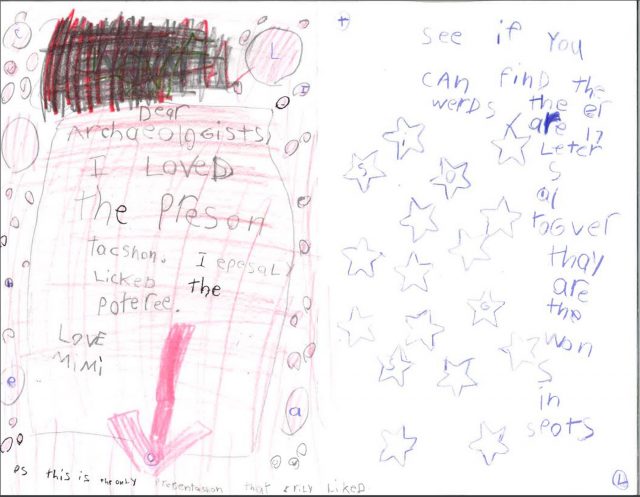 Dear
Archaeologists
I LOVED
the Preson
tacshon. I epesaly
Licked the
poteree.
LOVE
MiMi
PS this is the only presentasion that I rily Liked
see if You
CAN FinD the
werds the er
are 17
Leter
s
al
togver
thay
are
the
wons
in
spots